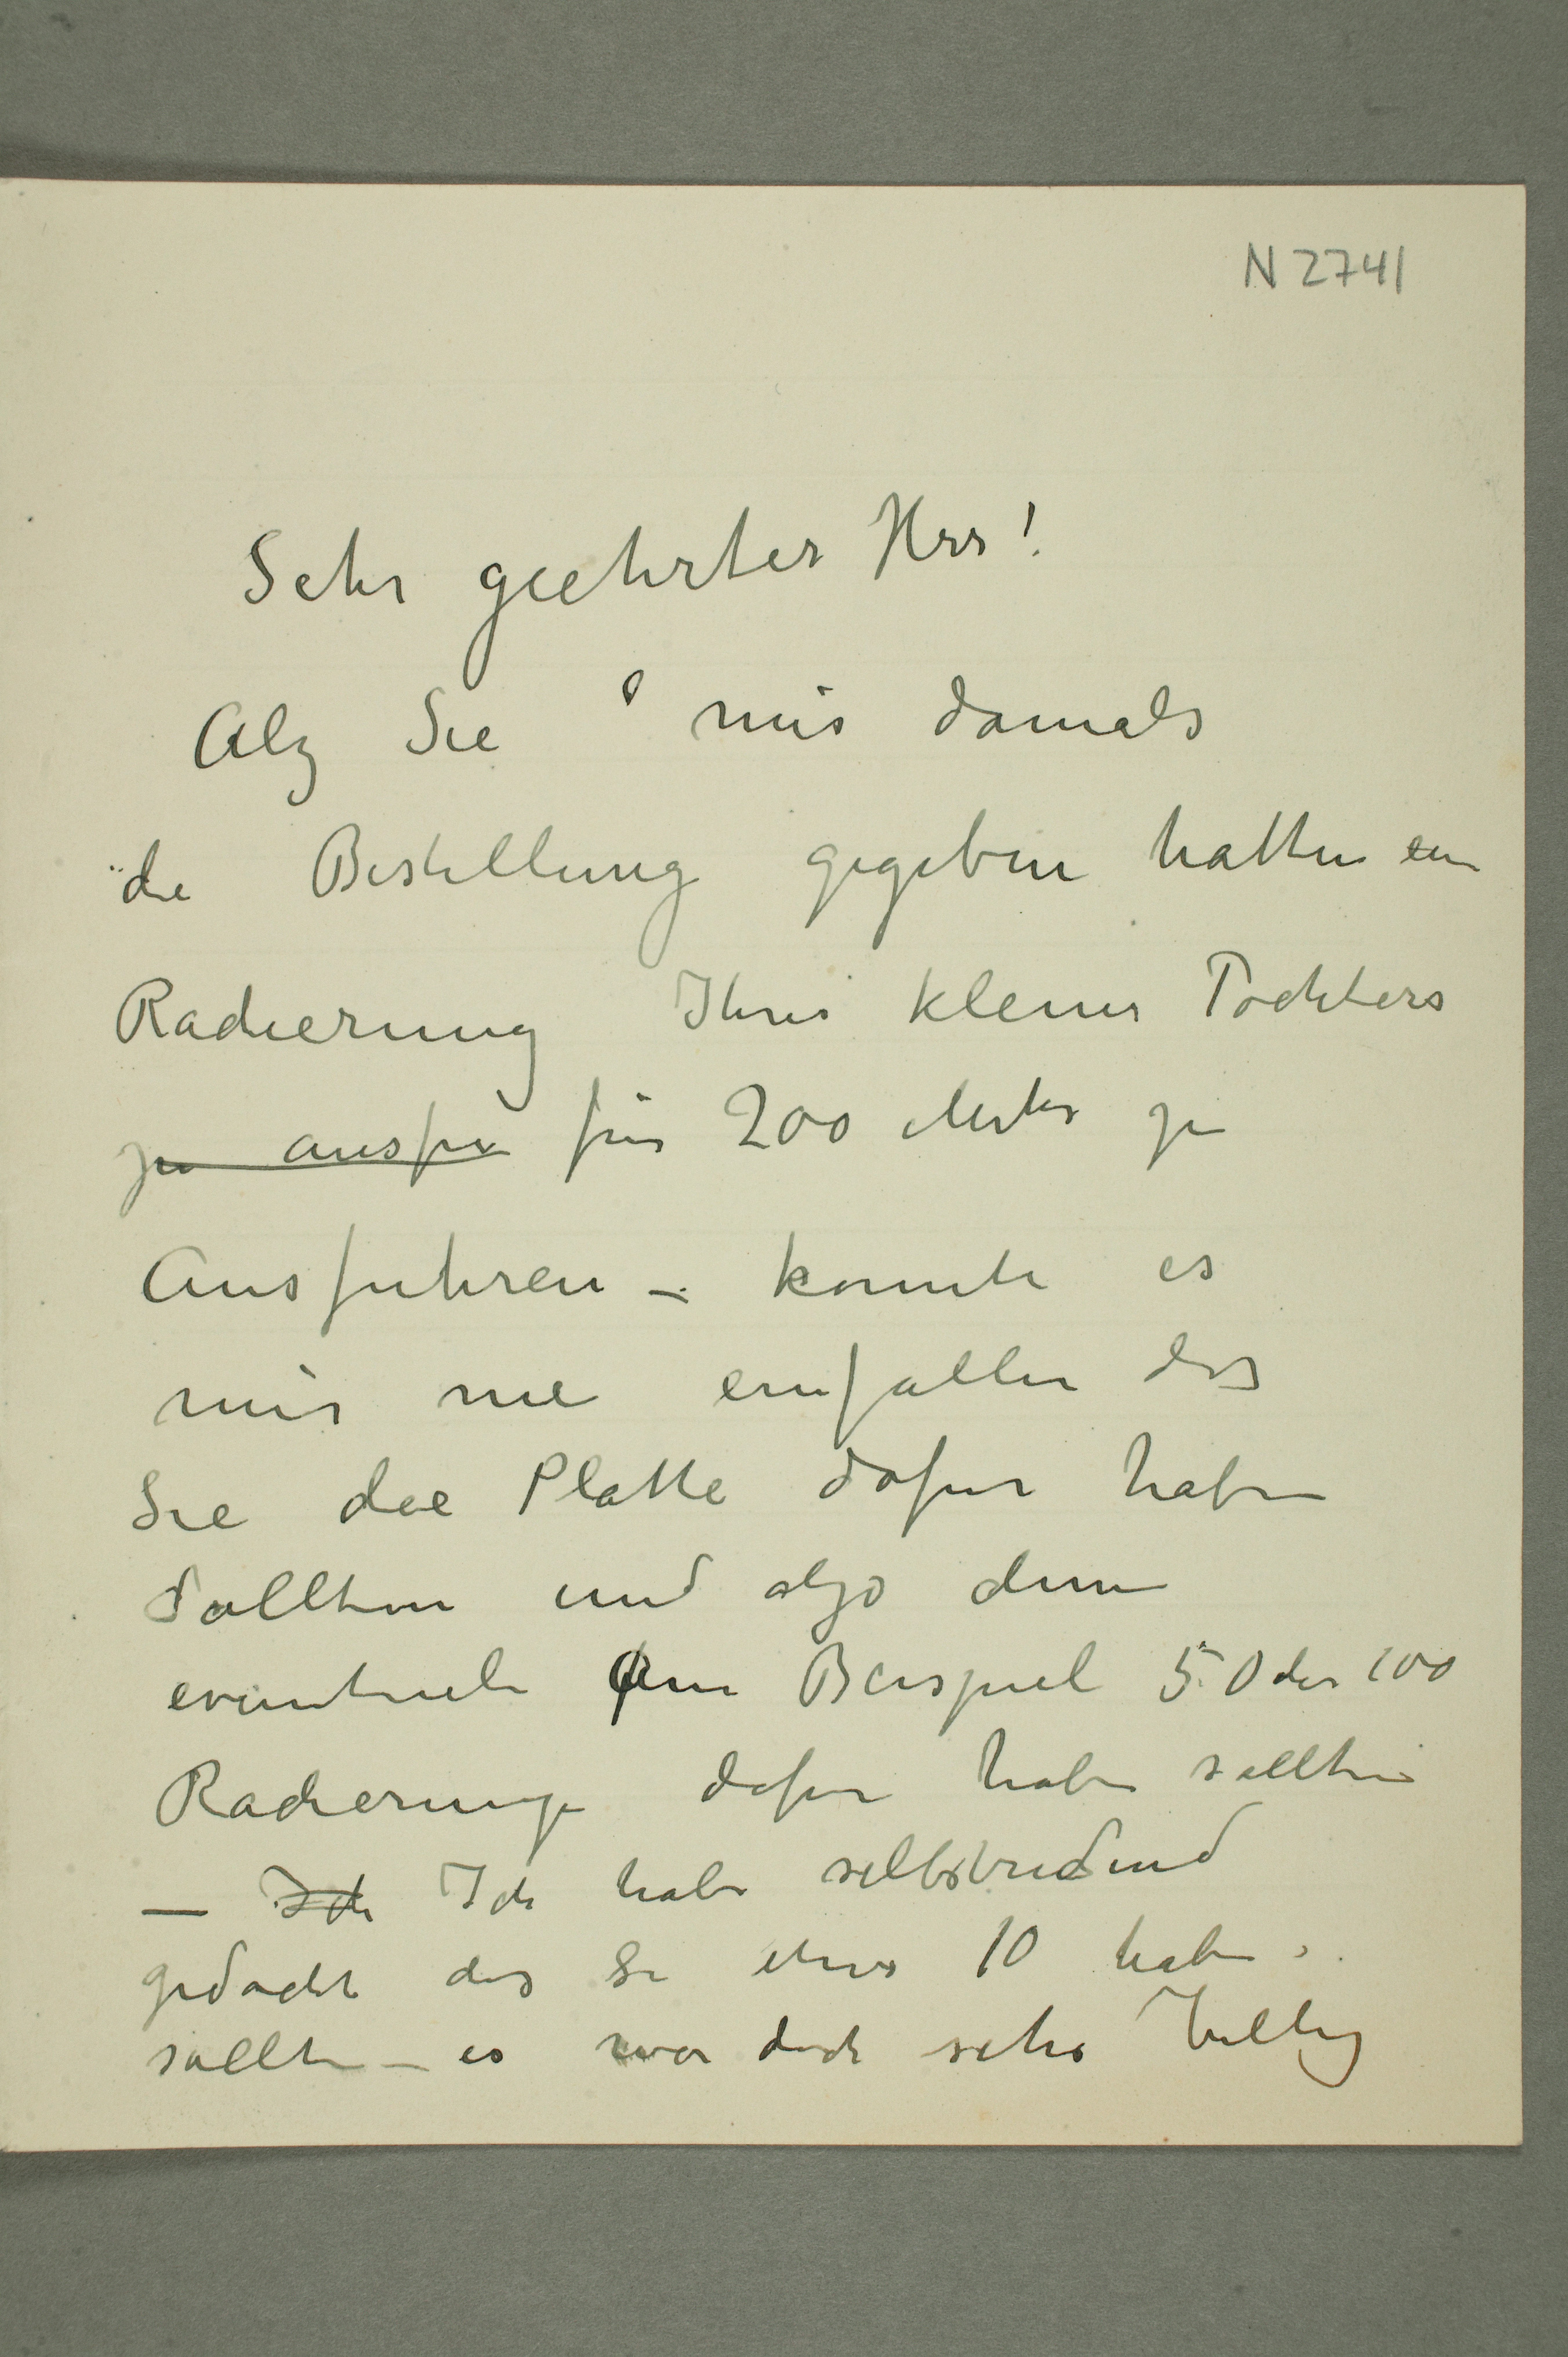 N 2741
Sehr geehrter Herr!
Alz Sie mir damals
die Bestellung gegeben hatten ein
Radierung Ihrer kleiner Tochters
zu ausfü für 200 Marks zu
Ausfuhren – konnte es
mir nie einfallen das
Sie die Platte dafur haben
sollten und also denn
eventuele zum Beispiel 50 der 100
Radierunge dafur haben sollten
– Ich Ich habe selbstredend
gedacht das Sie etwa 10 haben
sollten – es war doch sehr billig